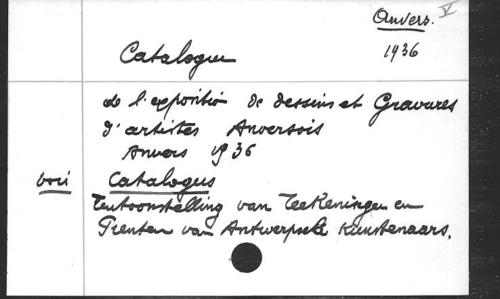 Anvers. V
1936
Catalogue
de l'expositio de dessins et Gravures
d'artistes Anversois
Anvers 1936
voir Catalogus
Tentoonstelling van Teekeningen en
Prenten van Antwerpsche Kunstenaars.